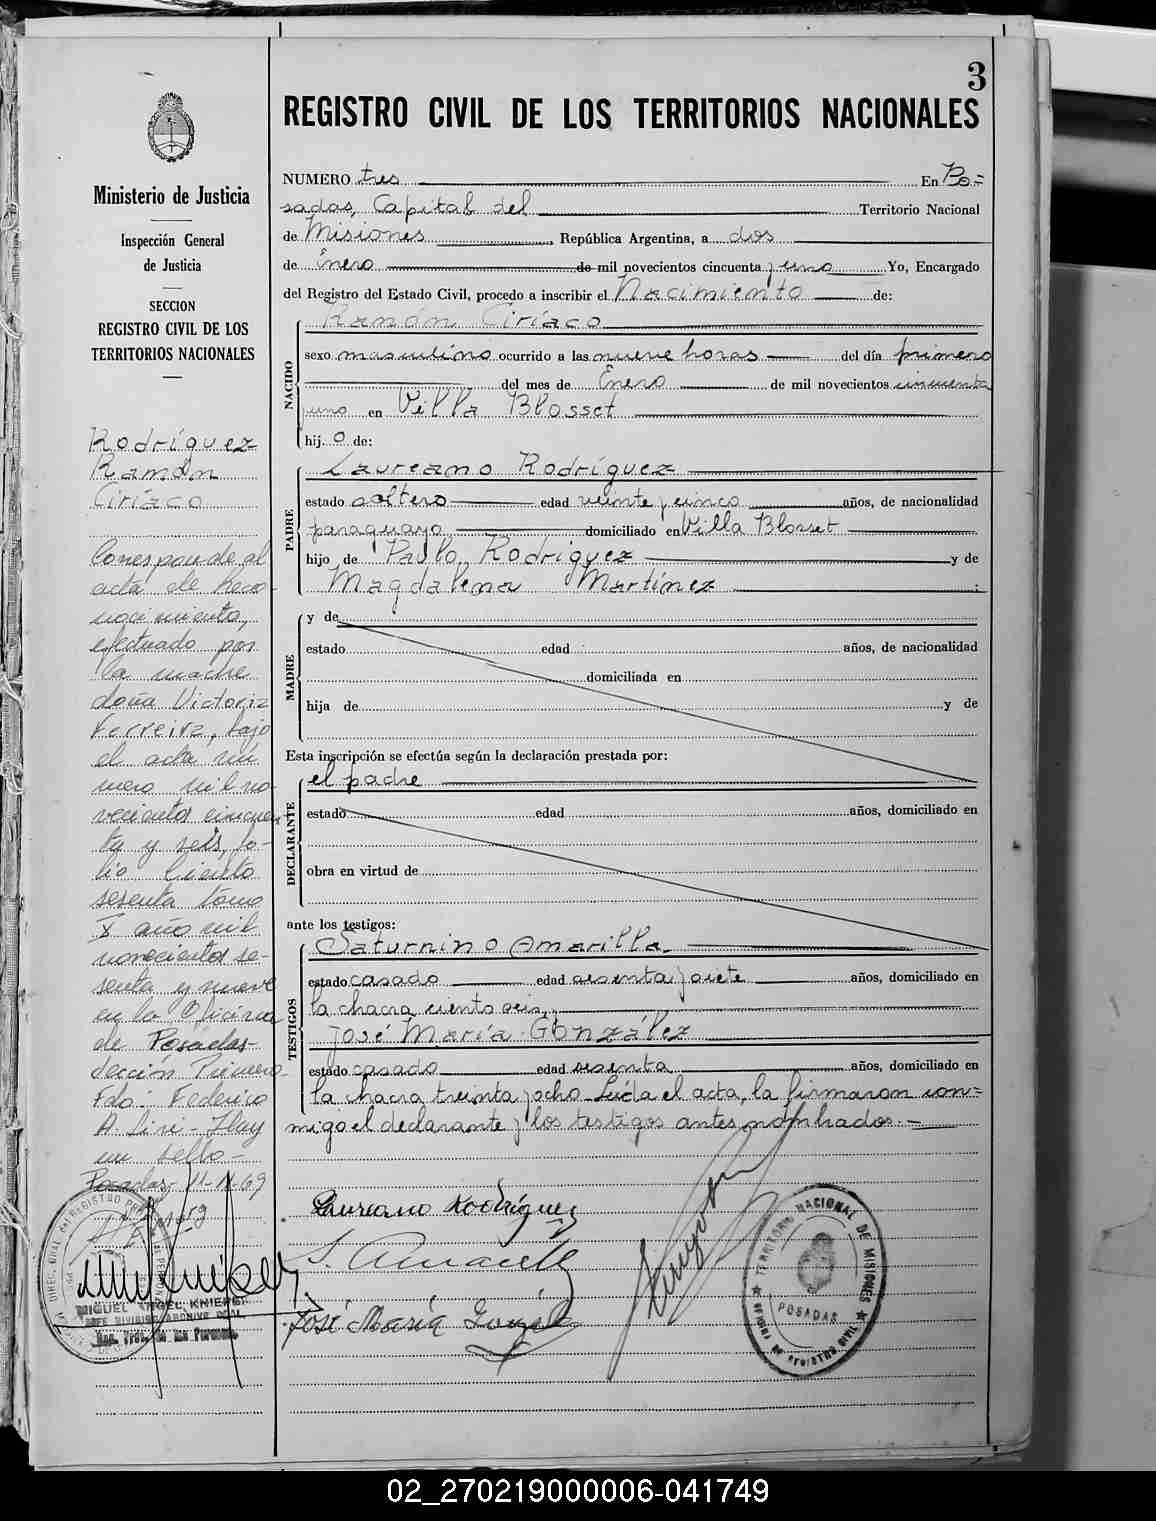 3
REGISTRO CIVIL DE LOS TERRITORIOS NACIONALES
Ministerio de Justicia
Inspección General
de Justicia
SECCION
REGISTRO CIVIL DE LOS
TERRITORIOS NACIONALES
Rodríguez
Ramón
Ciríaco
Corresponde al
acta de Reco-
nocimiento,
efectuado por
la madre
doña Victoria
Ferreira, bajo
el acta nú
mero mil no-
vecientos cincuen-
ta y seis, fo-
lio Ciento
sesenta tomo
X año mil
novecientos se-
senta y nueve
en la Oficina
de Posadas-
Sección Primera-
Fdo: Federico
A. - Hay
un sello-
Posadas, 11-11-69
MIGUEL ANGEL
JEFE DIVISION ARCHIVO GRAL.
NUMERO tres En Po=
sadas, Capital del Territorio Nacional
de Misiones, República Argentina, a dos
de Enero de mil novecientos cincuenta y uno Yo, Encargado
del Registro del Estado Civil, procedo a inscribir el Nacimiento de:
NACIDO
Ramón Ciríaco
sexo masculino ocurrido a las nueve horas del día primero
del mes de Enero de mil novecientos cincuenta
y uno en Villa Blosset
hij. o de:
PADRE
Laureano Rodríguez
estado soltero edad veinte y cinco años, de nacionalidad
paraguayo domiciliado en Villa Blosset
hijo de Pablo Rodríguez y de
Magdalena Martínez;
MADRE
y de
estado edad años, de nacionalidad
domiciliada en
hija de y de
Esta inscripción se efectúa según la declaración prestada por:
DECLARANTE
el padre
estado edad años, domiciliado en
obra en virtud de
ante los testigos:
TESTIGOS
Saturnino Amarilla
estado casado edad sesenta y siete años, domiciliado en
la chacra ciento seis,
José María González
estado casado edad sesenta años, domiciliado en
la chacra treinta y ocho. Leída el acta, la firmaron con=
migo el declarante y los testigos antes nombrados.-
Laureano Rodríguez
S. Amarilla
José María
TERRITORIO NACIONAL DE MISIONES
POSADAS
OFICINA DE REGISTRO CIVIL
02_270219000006-041749